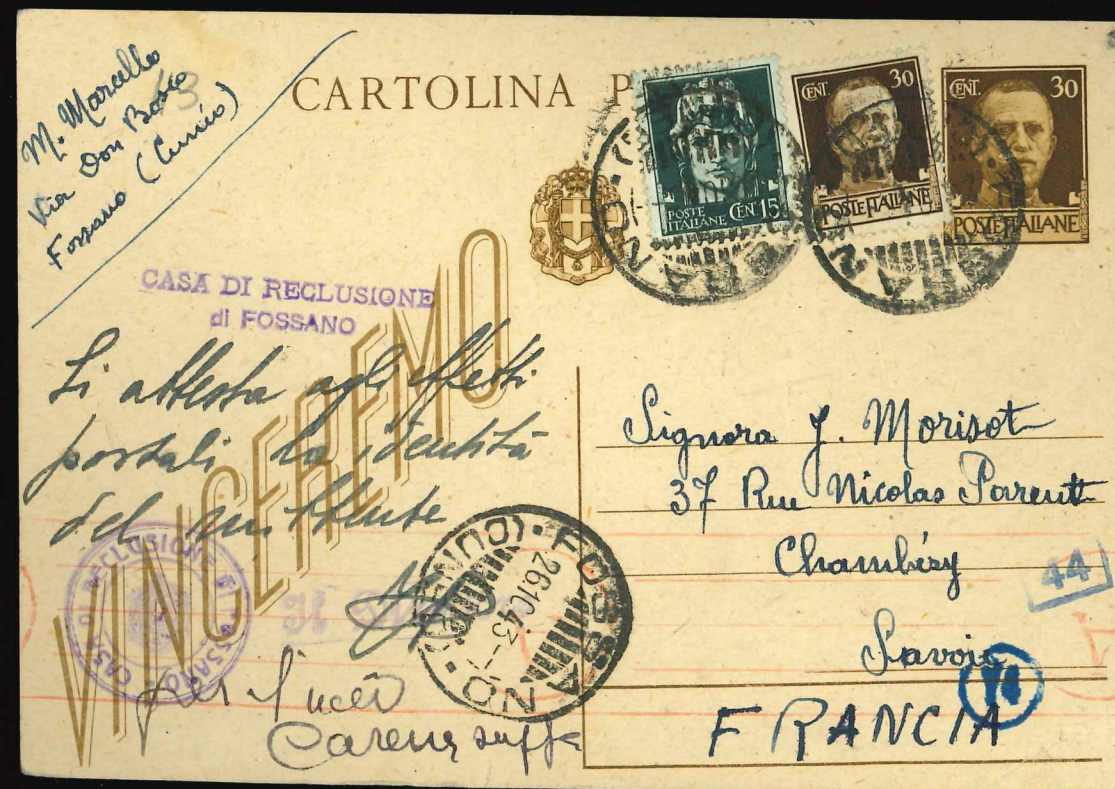 M. Marcello
Via Don Bosco
Fossano (Cuneo)
CARTOLINA P
CENT. 15
POSTE ITALIANE
CENT. 30
POSTE ITALIANE
CENT. 30
POSTE ITALIANE
CASA DI RECLUSIONE
di FOSSANO
VINCEREMO
Si attesta agli effetti
postali la identità
del mittente
FOSSANO (CUNEO)
26.10.43
Signora J. Morisot
37 Rue Nicolas Parent
Chambéry
Savoie
FRANCIA
44